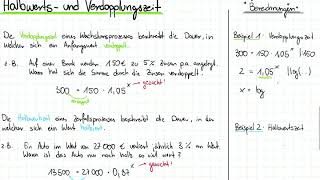 Halbwerts- und Verdopplungszeit
Die Verdopplungszeit eines Wachstumsprozesses beschreibt die Dauer, in
welcher sich ein Anfangswert verdoppelt.
z.B. Auf einer Bank werden 150€ zu 5% Zinsen p.a. angelegt.
Wann hat sich die Summe durch die Zinsen verdoppelt?
300 = 150 · 1,05^x gesucht!
Die Halbwertszeit eines Zerfallsprozesses beschreibt die Dauer, in der
welcher sich ein Wert halbiert.
z.B. Ein Auto im Wert von 27000 € verliert jährlich 3% an Wert.
Wann ist das Auto nur noch halb so viel wert?
13500 = 27000 · 0,97^x gesucht!
"Berechnungen"
Beispiel 1: Verdopplungszeit
300 = 150 · 1,05^x |:150
2 = 1,05^x |log(..)
x = log
Beispiel 2: Halbwertszeit